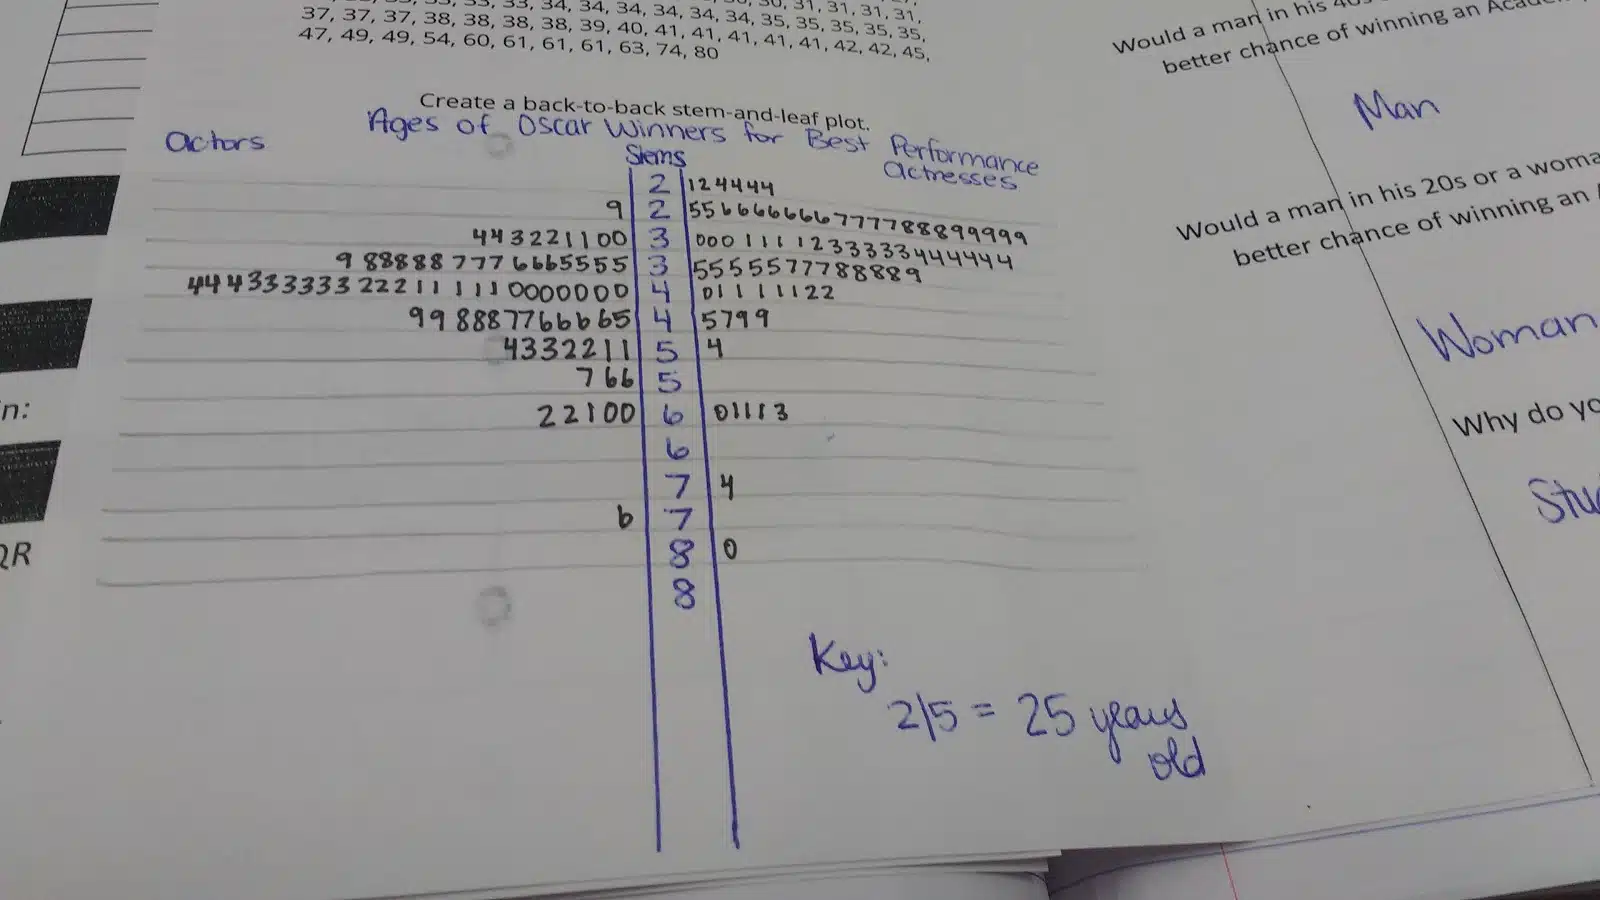 33, 33, 33, 34, 34, 34, 34, 34, 34, 34, 35, 35, 35, 35, 35,
30, 31, 31, 31, 31,
37, 37, 37, 38, 38, 38, 38, 39, 40, 41, 41, 41, 41, 41, 41, 42, 42, 45,
47, 49, 49, 54, 60, 61, 61, 61, 63, 74, 80
Create a back-to-back stem-and-leaf plot.
Ages of Oscar Winners for Best Performance
Actors
Stems
Actresses
2 124444
9 2 5566666666777788899999
443221100 3 00011112333334444444
98888877766655555 3 5555577788889
4443333332221111110000000 4 01111122
998887766665 4 5799
4332211 5 4
766 5
22100 6 01113
6
7 4
6 7
8 0
8
Key:
2/5 = 25 years
old
n:
QR
Would a man in his
better chance of winning an
Man
Would a man in his 20s or a
better chance of winning an
Woman
Why do